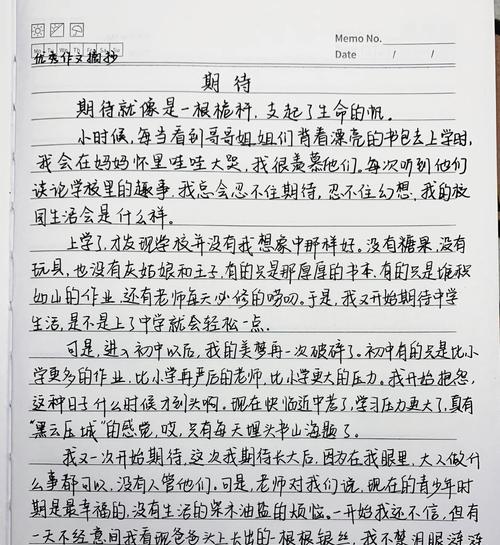 Memo No.
Mo Tu We Th Fr Sa Su
Date / /
优秀作文摘抄
期待
期待就像是一根桅杆,支起了生命的帆。
小时候,每当看到哥哥姐姐们背着漂亮的书包去上学时,
我会在妈妈怀里哇哇大哭,我很羡慕他们。每次听到他们
谈论学校里的趣事,我总会忍不住期待,忍不住幻想,我的校
园生活会是什么样。
上学了,才发现学校并没有我想象中那样好。没有糖果,没有
玩具,也没有灰姑娘和王子,有的只是那厚厚的书本,有的只是堆积
如山的作业,还有老师每天必修的唠叨。于是,我又开始期待中学
生活,是不是上了中学就会轻松一点。
可是,进入初中以后,我的美梦再一次破碎了。初中有的只是比小
学更多的作业,比小学再严厉的老师,比小学更大的压力。我开始抱怨,
这种日子什么时候才到头啊。现在快临近中考了,学习压力更大了,真有
"黑云压城"的感觉,哎,只有每天埋头书山海题了。
我又一次开始期待,这次我期待长大后,因为在我眼里,大人做什
么事都可以,没有人管他们。可是,老师对我们说,现在的青少年时
期是最幸福的,没有生活的柴米油盐的烦恼。一开始我还不信,但有
一天不经意间我看现爸爸头上长出的一根根银丝,我不禁泪眼涟涟